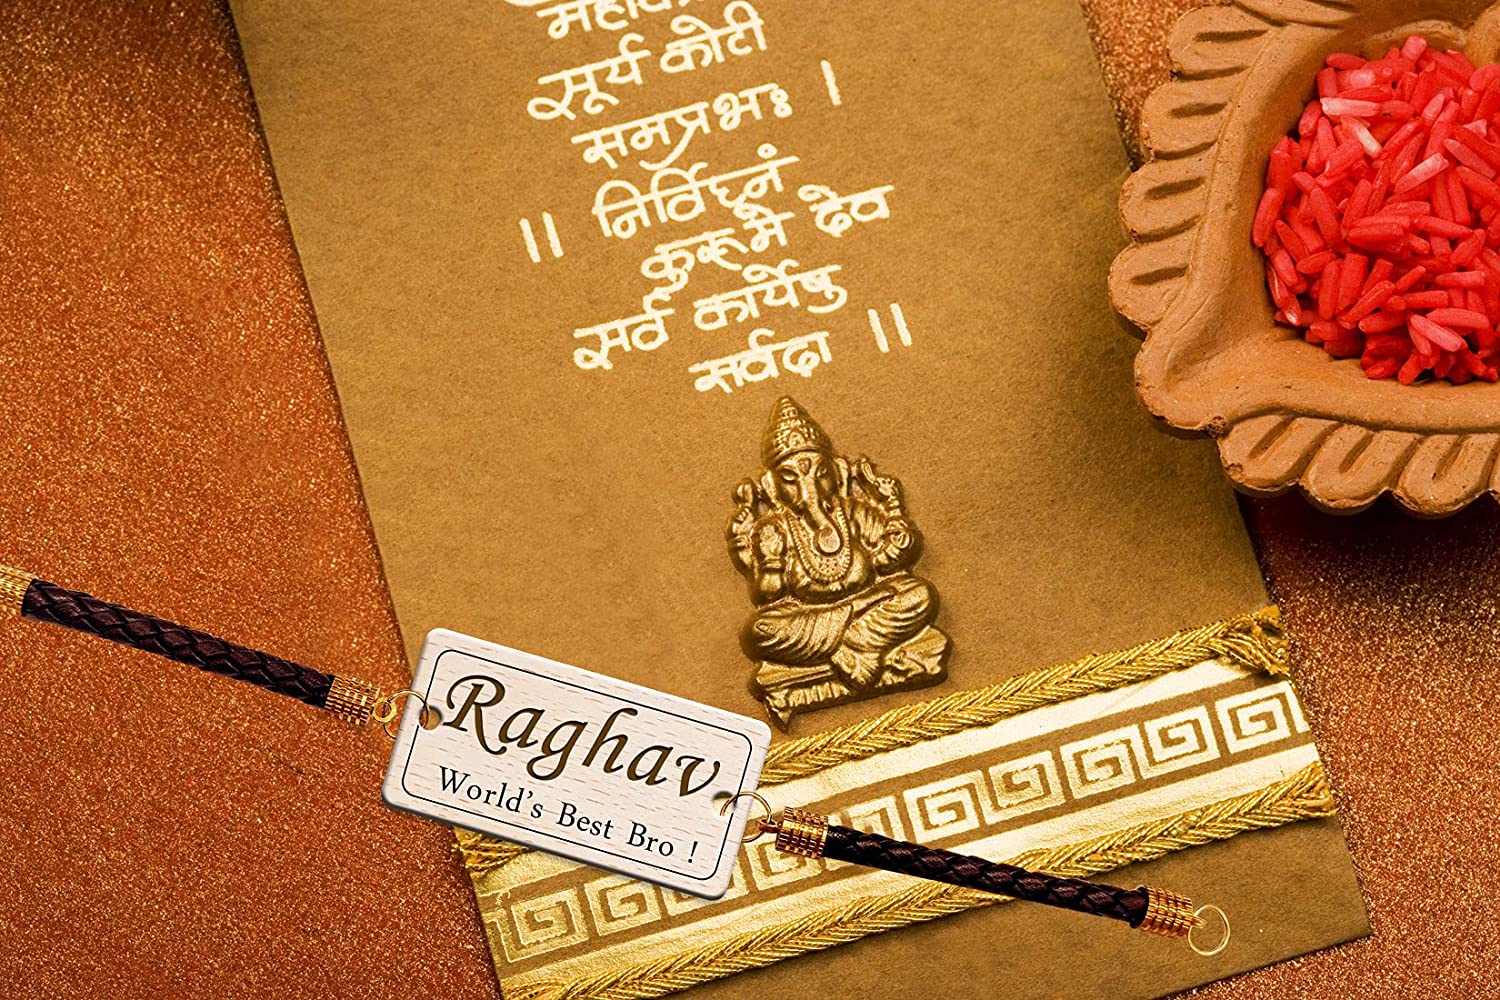 सूर्य कोटी
समप्रभः ।
॥ निर्विघ्नं
कुरूमे देव
सर्व कार्येषु
सर्वदा ॥
Raghav
World's Best Bro !